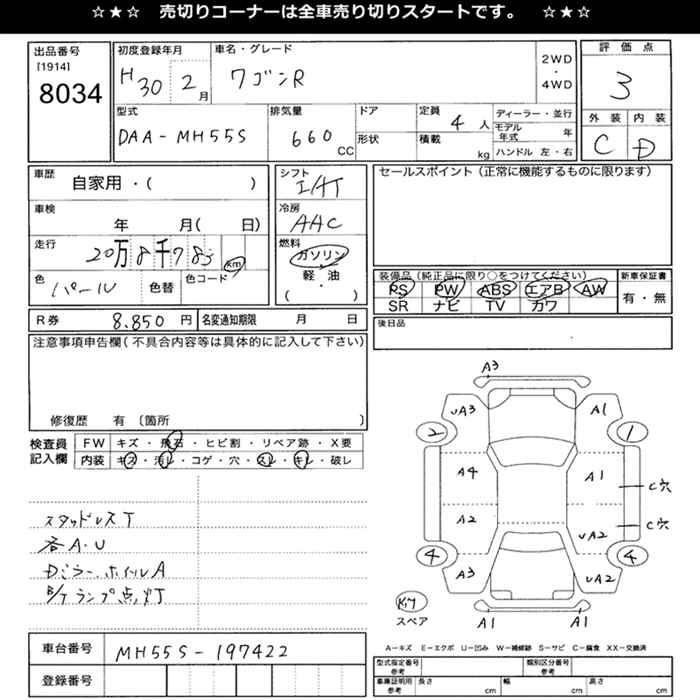 ☆★☆ 売切りコーナーは全車売り切りスタートです。 ☆★☆
出品番号
[1914]
8034
初度登録年月
H30 2月
車名・グレード
ワゴンR
2WD
・
4WD
評価点
3
外装 内装
C D
型式
DAA-MH55S
排気量
660 CC
ドア
形状
定員
4 人
積載
kg
ディーラー・並行
モデル年式 年
ハンドル 左・右
車歴
自家用・( )
車検
年 月( 日)
走行
20万8千783 km
色
パール
色替
色コード
シフト
I/AT
冷房
AAC
燃料
ガソリン
軽・油
( )
セールスポイント(正常に機能するものに限ります)
装備品(純正品に限り○をつけてください)
PS PW ABS エアB AW
SR ナビ TV カワ
新車保証書
有・無
R券 8.850 円 名変通知期限 月 日
後日品
注意事項申告欄(不具合内容等は具体的に記入して下さい)
修復歴 有〔箇所 〕
検査員記入欄
FW キズ・飛石・ヒビ割・リペア跡・X要
内装 キズ・汚レ・コゲ・穴・スレ・キレ・破レ
スタッドレスT
各A・U
Dミラー、ホイルA
B/Tランプ点灯
車台番号 MH55S-197422
登録番号
A3
UA3 A1
2 1
A4 A1
C穴
A2 UA2
C穴
4 4
A3 UA2
Kリ
スペア
A1 A1
A―キズ E―エクボ U―凹み W―補修跡 S―サビ C―腐食 XX―交換済
型式指定番号
参考
類別区分番号
参考
車庫証明用
参考
長さ cm
幅 cm
高さ cm